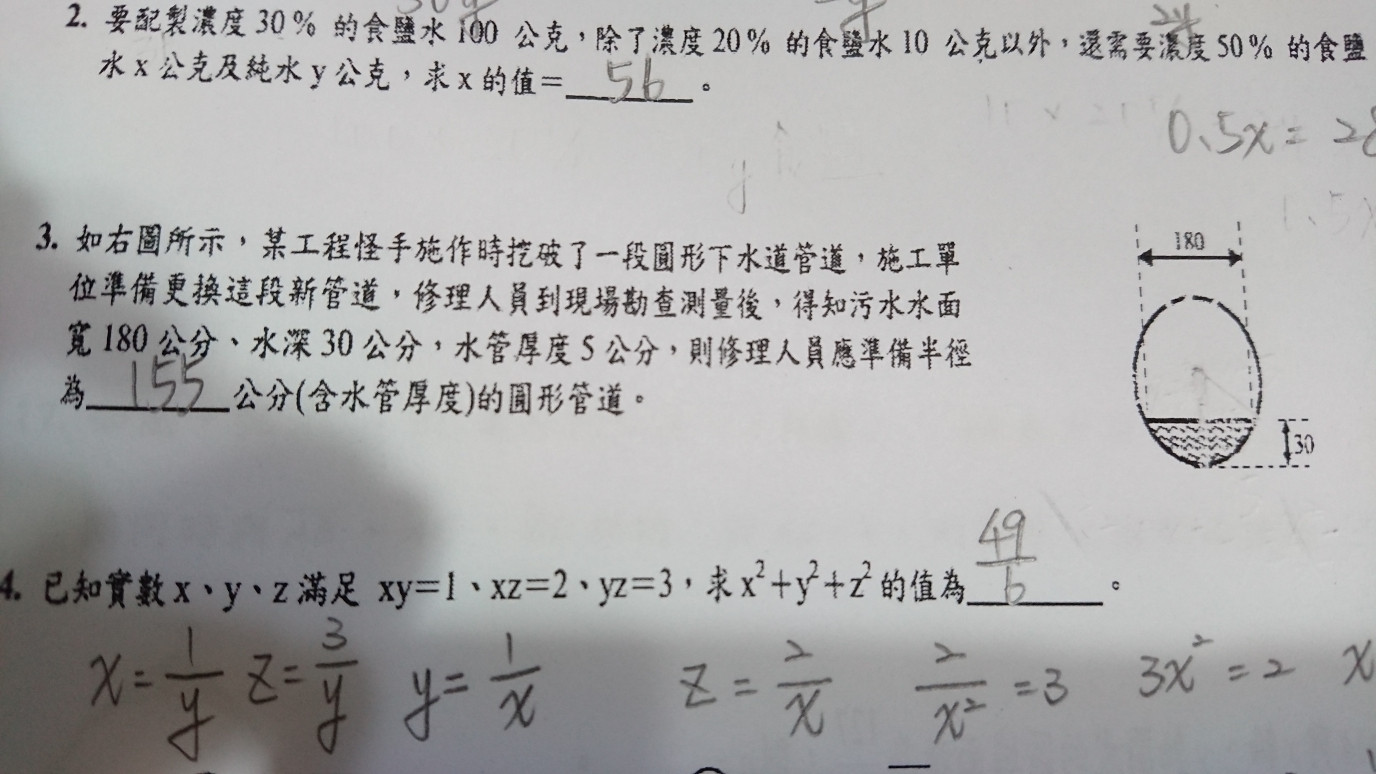 2. 要配製濃度30%的食鹽水100公克，除了濃度20%的食鹽水10公克以外，還需要濃度50%的食鹽
水x公克及純水y公克，求x的值=56。
0.5x=28
3. 如右圖所示，某工程怪手施作時挖破了一段圓形下水道管道，施工單
位準備更換這段新管道，修理人員到現場勘查測量後，得知污水水面
寬180公分、水深30公分，水管厚度5公分，則修理人員應準備半徑
為155公分(含水管厚度)的圓形管道。
180
30
4. 已知實數x、y、z滿足 xy=1、xz=2、yz=3，求x²+y²+z²的值為49/6。
x=1/y z=3/y y=1/x z=2/x 2/x²=3 3x²=2 x